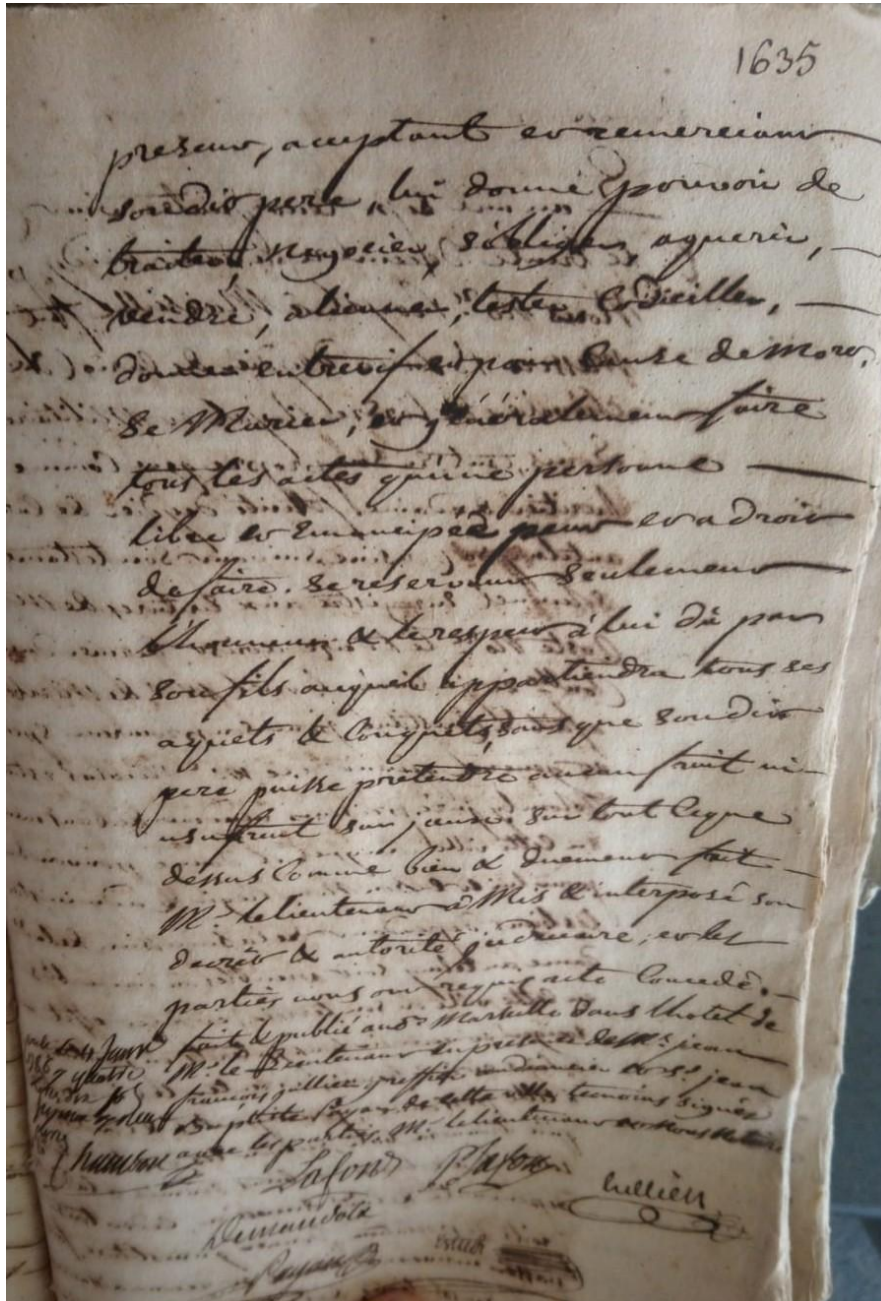 1635
present, aceptant et remerciant
sondit pere, lui donne pouvoir de
traiter, negocier, s'obliger, aquerir,
vendre, aliener, tester Codiciller,
donner entrevifs et pour Cause de Mort,
se Marier, et généralement faire
tous les actes qu'une personne
libre et Emancipée peut et a droit
de faire. se reservant seulement
l'honneur & le respect à lui dû par
son fils auquel appartiendra tous ses
aquets & Conquets, sans que sondit
pere puisse pretendre aucun fruit ni
usufruit sur tout Ceque
dessus Comme bien & duement fait
Mr. le lieutenant à Mis & interposé son
decret & autorité judiciaire, et les
parties nous ont requis acte Concedé.
fait & publié aud. Marseille dans lhotel de
Mr. le Lieutenant en presence de Me. jean
françois jullien greffier et sr. jean
Baptiste Payan de cette ville temoins signés
avec les parties, Mr. le lieutenant et Nous Notaire
Lafont P. Lafont
Jullien
Demandolx
Payan